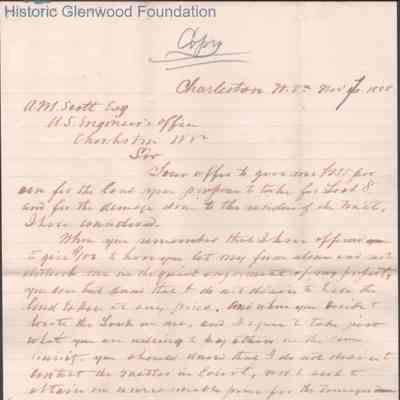 Historic Glenwood Foundation
Copy
Charleston W. Va Nov
A M Scott Esq
U.S. Engineer's Office
Charleston W Va
Sir
Your offer to give me $255 per
acre for the land you propose to take for Lock 8
and for the damage done to the residue of the tract,
I have considered.
When you remember that I have offered
to give you to have you let my farm alone and not
disturb me in the quiet enjoyment of my property,
you can but that I do not desire to have the
land taken at any price. And when you decide to
locate the Lock on me, and I agree to take just
what you are willing to pay others in the same
you should that I do not desire to
contest the matter in Court, nor I seek to
obtain an unreasonable price for the